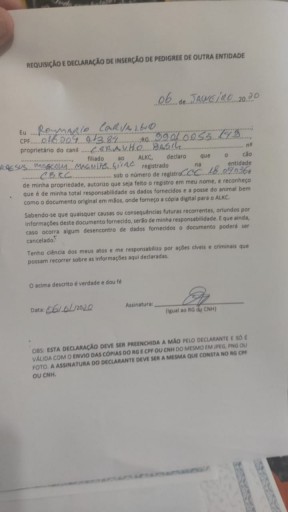 REQUISIÇÃO E DECLARAÇÃO DE INSERÇÃO DE PEDIGREE DE OUTRA ENTIDADE
06 de JANEIRO 2020
Eu Reymario Carvalho
CPF
proprietário do canil BASIL nº
filiado ao ALKC, declaro que o cão
registrado na entidade
CBKC sob o número de registro
de minha propriedade, autorizo que seja feito o registro em meu nome, e reconheço
que é de minha total responsabilidade os dados fornecidos e a posse do animal bem
como o documento original em mãos, onde forneço a cópia digital para o ALKC.
Sabendo-se que quaisquer causas ou consequências futuras recorrentes, oriundas por
informações deste documento fornecido, serão de minha responsabilidade. E que ainda,
caso ocorra algum desencontro de dados fornecidos o documento poderá ser
cancelado.
Tenho ciência dos meus atos e me responsabilizo por ações cíveis e criminais que
possam recorrer sobre as informações aqui declaradas.
O acima descrito é verdade e dou fé
Data: 06/01/2020 Assinatura:
(Igual ao RG ou CNH)
OBS: ESTA DECLARAÇÃO DEVE SER PREENCHIDA A MÃO PELO DECLARANTE E SÓ É
VÁLIDA COM O ENVIO DAS CÓPIAS DO RG E CPF OU CNH DO MESMO EM JPEG, PNG OU
FOTO. A ASSINATURA DO DECLARANTE DEVE SER A MESMA QUE CONSTA NO RG OU CPF
OU CNH.